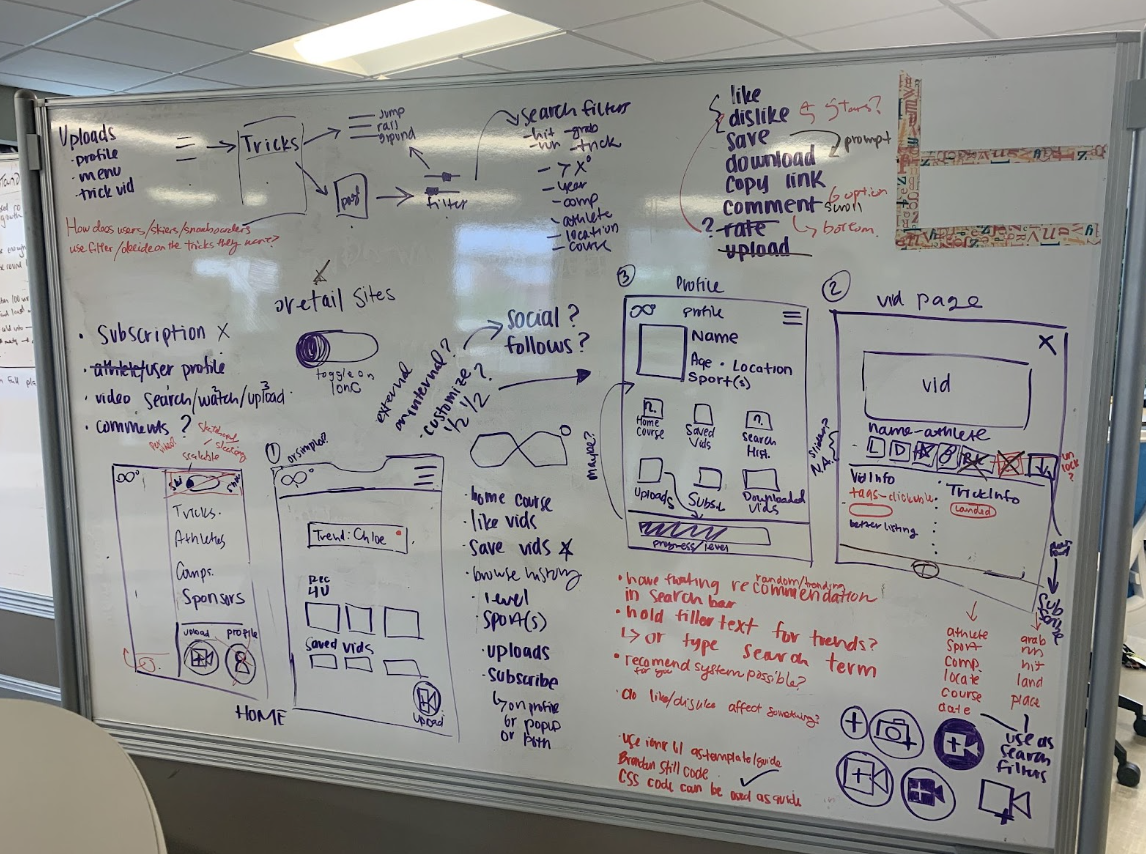 Uploads
· profile
· menu
· trick vid
Tricks
Jump
rail
ground
filter
search filters
- hit - grab
- run - trick
- > x°
- year
- comp
- athlete
- location
- course
like
dislike
save
download
copy link
comment
? rate
upload
5 stars?
prompt
scroll
↳ bottom
How does users/skiers/snowboarders
use filter/decide on the tricks they want?
retail sites
toggle on
Ionic
· Subscription X
· athlete/user profile
· video search/watch/upload
· comments ?
scalable
Tricks
Athletes
Comps.
Sponsors
upload
profile
HOME
①
or simple?
Trend: Chloe
REC
4U
Saved Vids
Upload
external
or internal?
customize?
1/2 1/2
social?
follows?
· home course
· like vids
· save vids
· browse history
· level
· sport(s)
· uploads
· subscribe
↳ on profile
or popup
or both
maybe?
③
Profile
profile
Name
Age · Location
Sport(s)
Home
Course
Saved
Vids
Search
Hist.
Uploads
Subsc.
Downloaded
Vids
progress/level
②
vid page
X
vid
name-athlete
L D
N.A.
un
lock?
Vid Info
tags-clickable
better listing
Trick Info
Landed
random/trending
· have fading recommendation
in search bar
· hold filler text for trends?
↳ or type search term
· recomend system possible?
for you
· do like/dislike affect something?
· use ionic UI as template/guide
CSS code can be used as guide
athlete
sport
comp.
locate
course
date
grab
run
hit
land
place
use as
search
filters